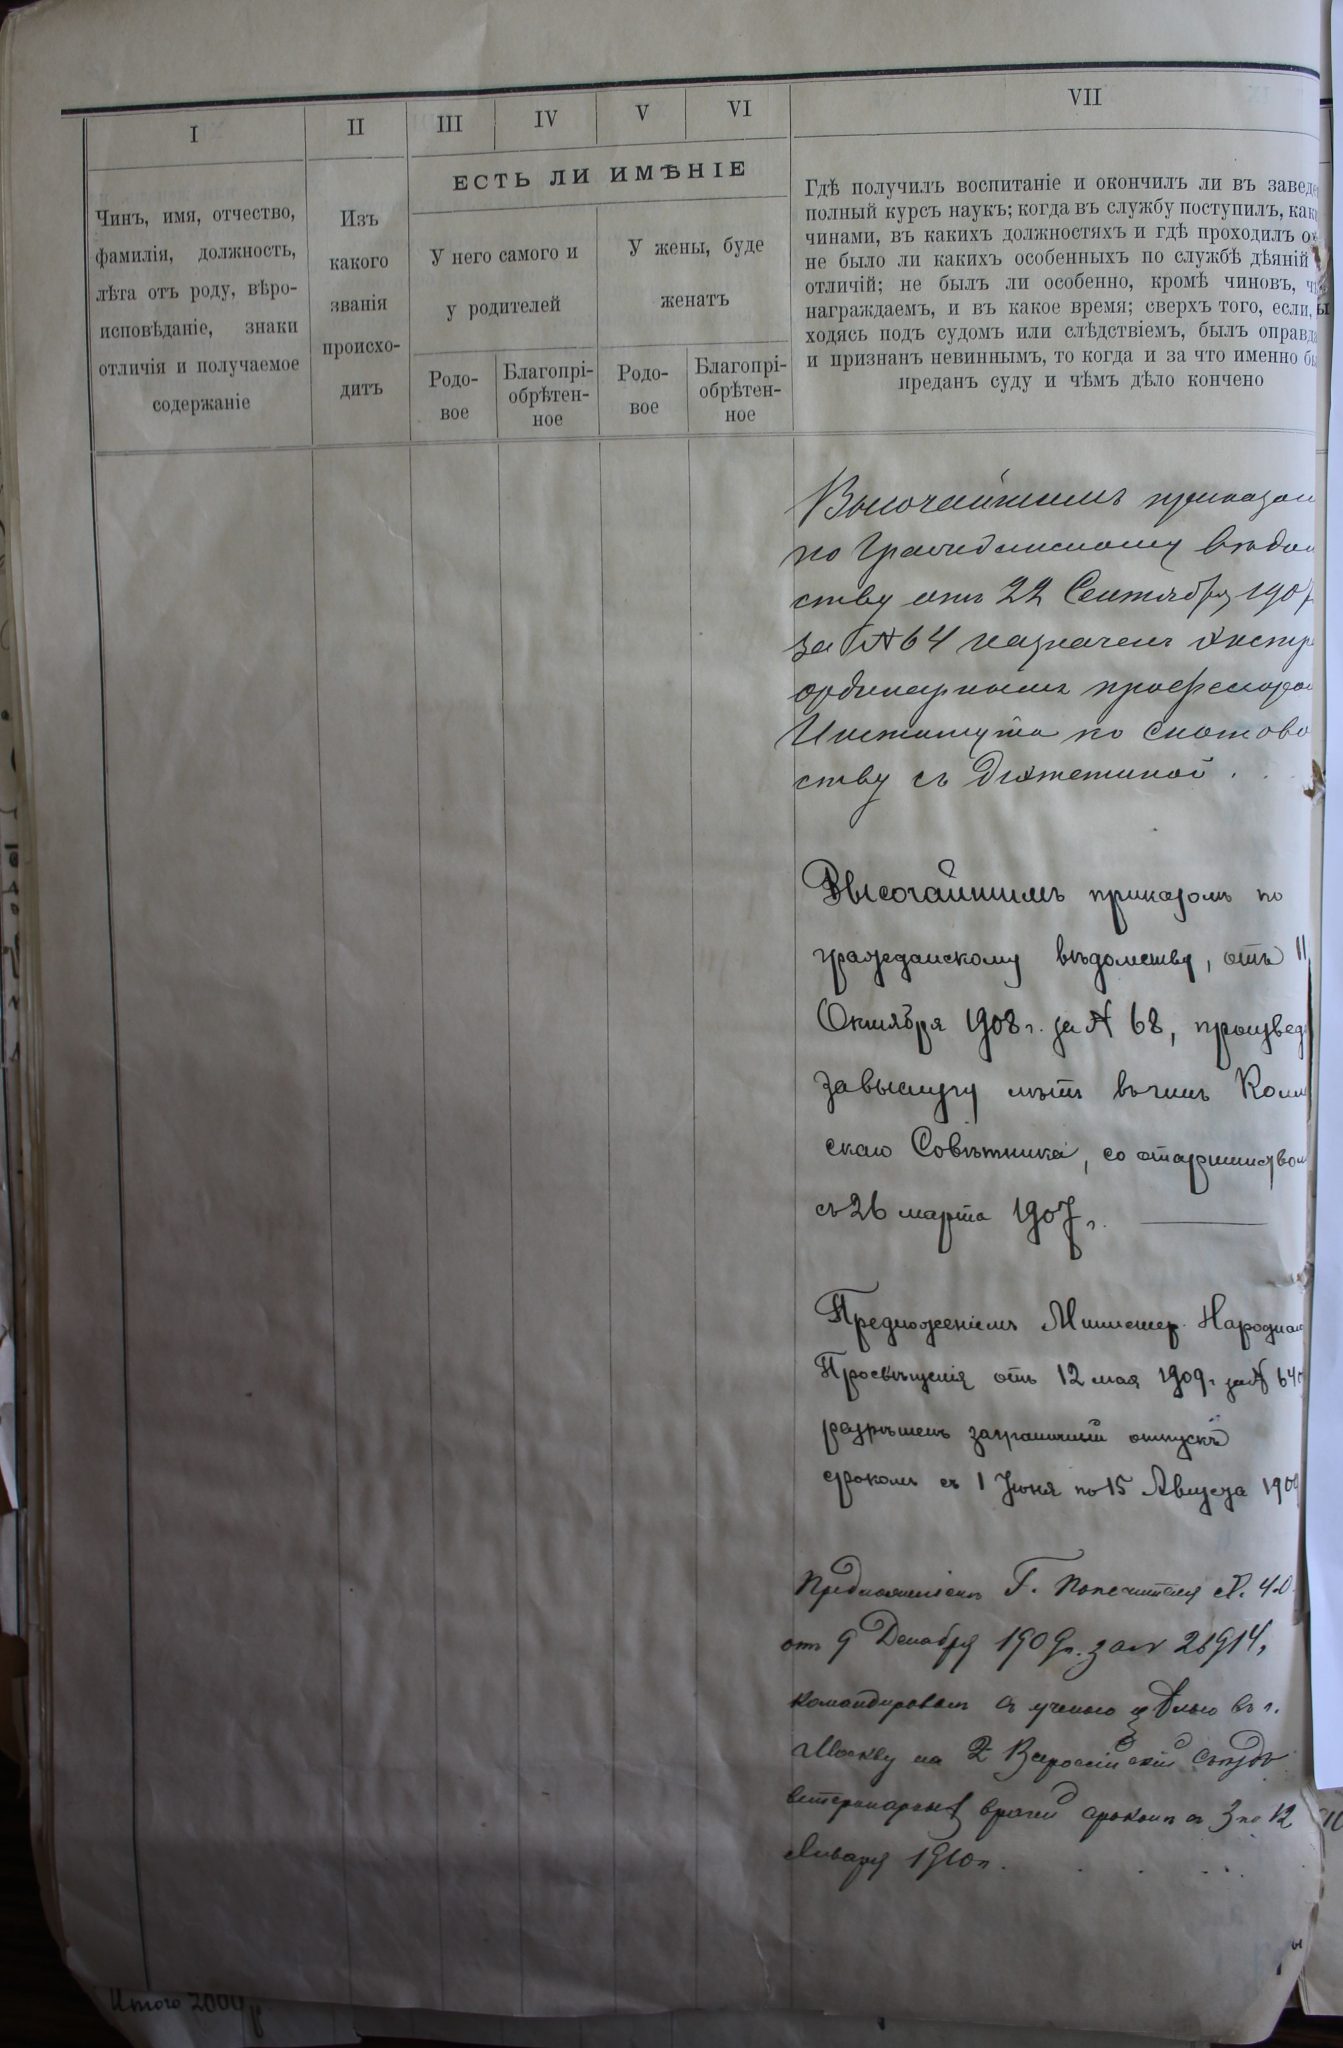 I
II
III
IV
V
VI
VII
Чинъ, имя, отчество,
фамилія, должность,
лѣта отъ роду, вѣро-
исповѣданіе, знаки
отличія и получаемое
содержаніе
Изъ
какого
званія
происхо-
дитъ
ЕСТЬ ЛИ ИМѢНІЕ
У него самого и
у родителей
У жены, буде
женатъ
Родо-
вое
Благопрі-
обрѣтен-
ное
Родо-
вое
Благопрі-
обрѣтен-
ное
Гдѣ получилъ воспитаніе и окончилъ ли въ завед
полный курсъ наукъ; когда въ службу поступилъ, как
чинами, въ какихъ должностяхъ и гдѣ проходилъ о
не было ли какихъ особенныхъ по службѣ дѣяній
отличій; не былъ ли особенно, кромѣ чиновъ, ч
награждаемъ, и въ какое время; сверхъ того, если,
ходясь подъ судомъ или слѣдствіемъ, былъ оправд
и признанъ невиннымъ, то когда и за что именно б
преданъ суду и чѣмъ дѣло кончено
Высочайшимъ приказом
по Гражданскому вѣдом
ству отъ 22 Сентября 190
за № 64 назначенъ экстр
ординарнымъ профессором
Института по скотово
ству съ діэтетикой.
Высочайшимъ приказомъ по
гражданскому вѣдомству, отъ 11
Октября 1908 г. за № 68, произвед
за выслугу лѣтъ въ чинъ Колл
скаго Совѣтника, со старшинством
съ 26 марта 1907 г.
Предложеніемъ Министер. Народнаго
Просвѣщенія отъ 12 мая 1909 г. за № 640
разрѣшенъ заграничный отпускъ
срокомъ съ 1 Іюня по 15 Августа 1909
Предложеніемъ Г. Попечителя
отъ 9 Декабря 1909 г. за № 26914,
командированъ съ ученою цѣлью въ г.
Москву на 2 Всероссійскій съѣздъ
ветеринарныхъ врачей срокомъ съ 3 по 12
Января 1910 г.
Итого 2000 р